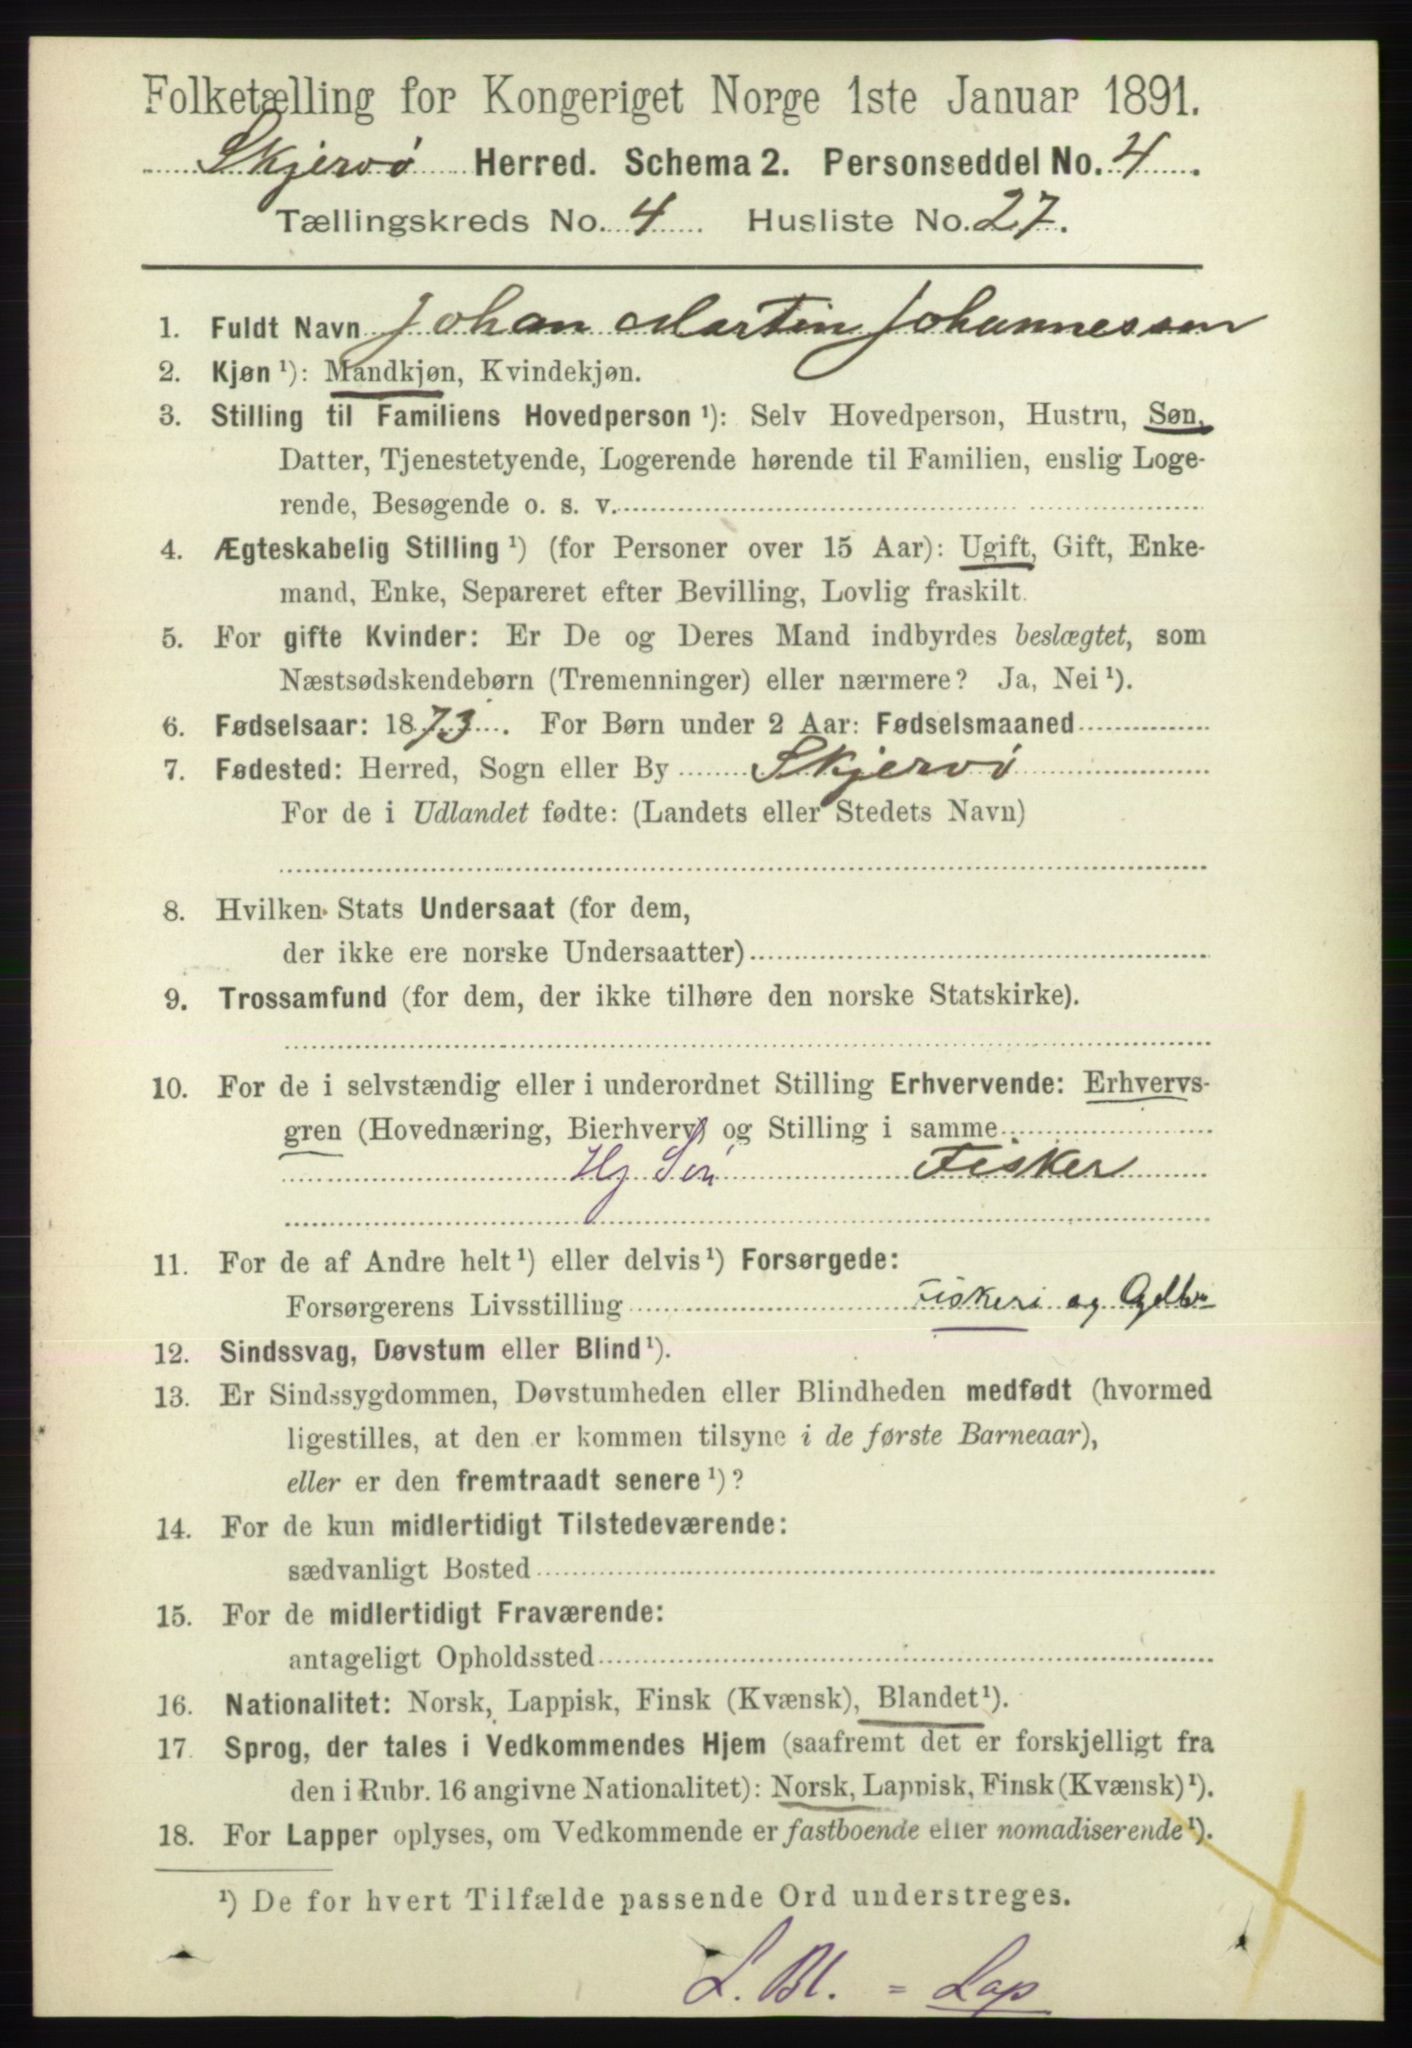 Folketælling for Kongeriget Norge 1ste Januar 1891.
Skjervø Herred. Schema 2. Personseddel No. 4.
Tællingskreds No. 4 Husliste No. 27.
1. Fuldt Navn Johan Martin Johannessen
2. Kjøn ¹): Mandkjøn, Kvindekjøn.
3. Stilling til Familiens Hovedperson ¹): Selv Hovedperson, Hustru, Søn,
Datter, Tjenestetyende, Logerende hørende til Familien, enslig Loge-
rende, Besøgende o. s. v.
4. Ægteskabelig Stilling ¹) (for Personer over 15 Aar): Ugift, Gift, Enke-
mand, Enke, Separeret efter Bevilling, Lovlig fraskilt.
5. For gifte Kvinder: Er De og Deres Mand indbyrdes beslægtet, som
Næstsødskendebørn (Tremenninger) eller nærmere? Ja, Nei ¹).
6. Fødselsaar: 1873. For Børn under 2 Aar: Fødselsmaaned
7. Fødested: Herred, Sogn eller By Skjervø
For de i Udlandet fødte: (Landets eller Stedets Navn)
8. Hvilken Stats Undersaat (for dem,
der ikke ere norske Undersaatter)
9. Trossamfund (for dem, der ikke tilhøre den norske Statskirke).
10. For de i selvstændig eller i underordnet Stilling Erhvervende: Erhvervs-
gren (Hovednæring, Bierhverv) og Stilling i samme
Hj Søn Fisker
11. For de af Andre helt ¹) eller delvis ¹) Forsørgede:
Forsørgerens Livsstilling Fiskeri og
12. Sindssvag, Døvstum eller Blind ¹).
13. Er Sindssygdommen, Døvstumheden eller Blindheden medfødt (hvormed
ligestilles, at den er kommen tilsyne i de første Barneaar),
eller er den fremtraadt senere ¹)?
14. For de kun midlertidigt Tilstedeværende:
sædvanligt Bosted
15. For de midlertidigt Fraværende:
antageligt Opholdssted
16. Nationalitet: Norsk, Lappisk, Finsk (Kvænsk), Blandet ¹).
17. Sprog, der tales i Vedkommendes Hjem (saafremt det er forskjelligt fra
den i Rubr. 16 angivne Nationalitet): Norsk, Lappisk, Finsk (Kvænsk) ¹).
18. For Lapper oplyses, om Vedkommende er fastboende eller nomadiserende ¹).
¹) De for hvert Tilfælde passende Ord understreges.
L. Bl. = Lap